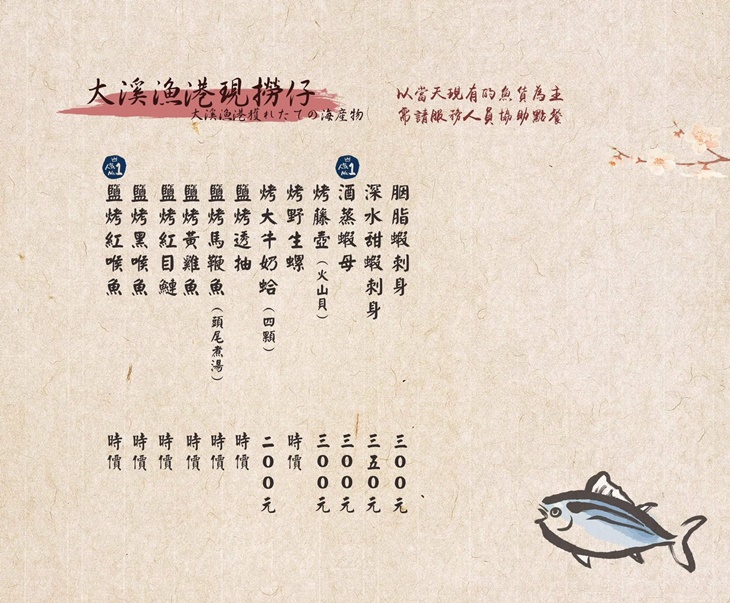 大溪漁港現撈仔
大溪漁港獲れたての海産物
以當天現有的魚貨為主
需請服務人員協助點餐
胭脂蝦刺身 三00元
深水甜蝦刺身 三五0元
人氣No.1
酒蒸蝦母 三00元
烤藤壺（火山貝） 三00元
烤野生螺 時價
烤大牛奶蛤（四顆） 二00元
鹽烤透抽 時價
鹽烤馬鞭魚（頭尾煮湯） 時價
鹽烤黃雞魚 時價
鹽烤紅目鰱 時價
鹽烤黑喉魚 時價
人氣No.1
鹽烤紅喉魚 時價